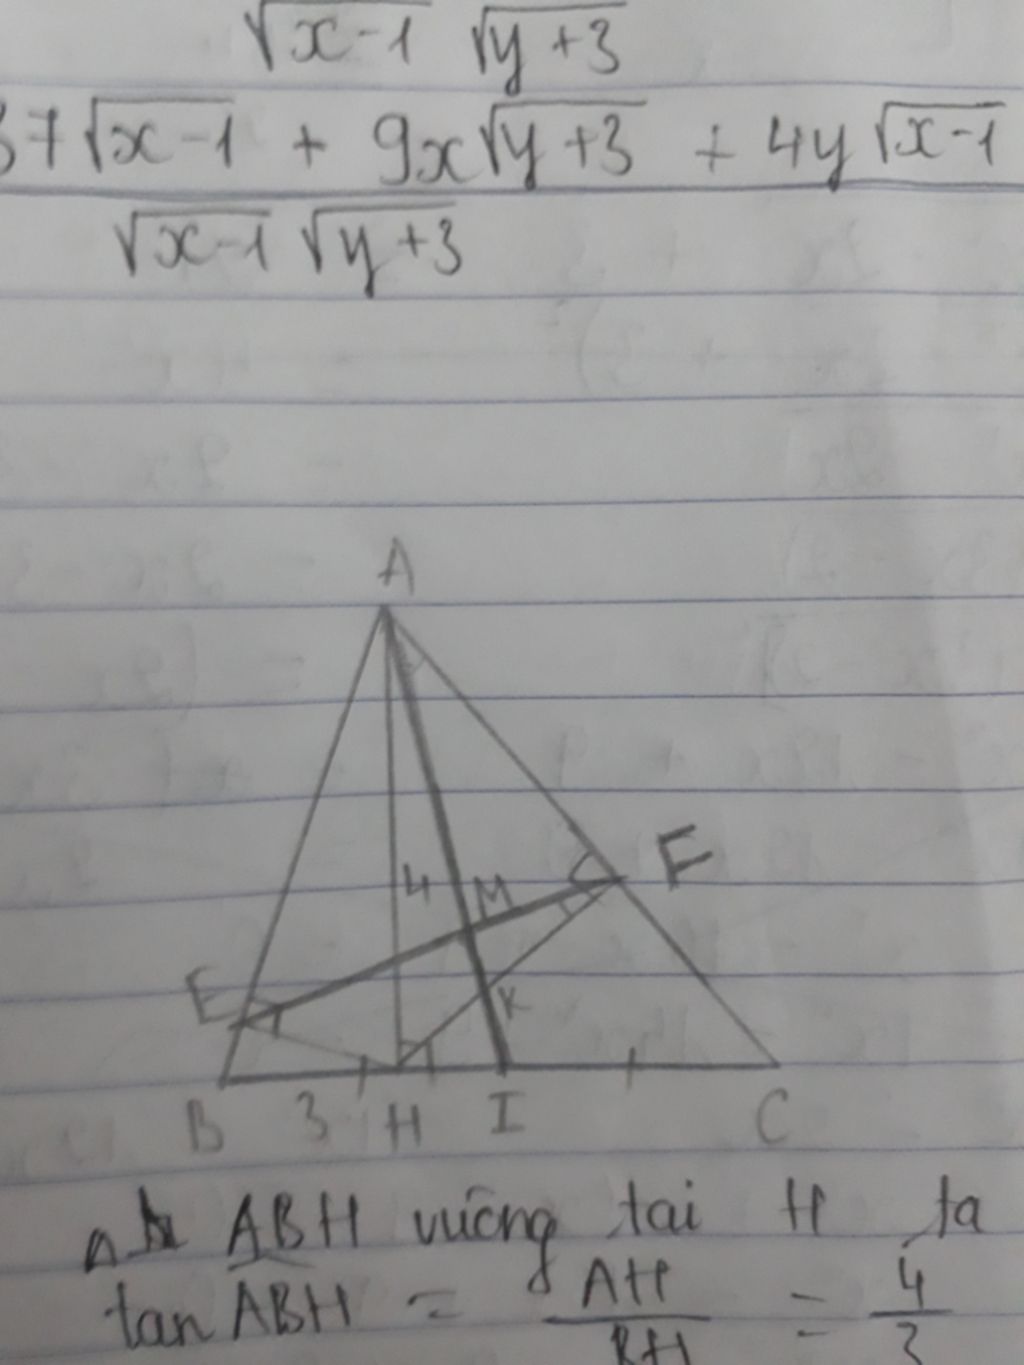 √x-1 √y+3
37√x-1 + 9x√y+3 + 4y√x-1
√x-1 √y+3
A
4 M F
E K
B 3 H I C
ABH vuông tại H ta
tan ABH = AH/BH = 4/3